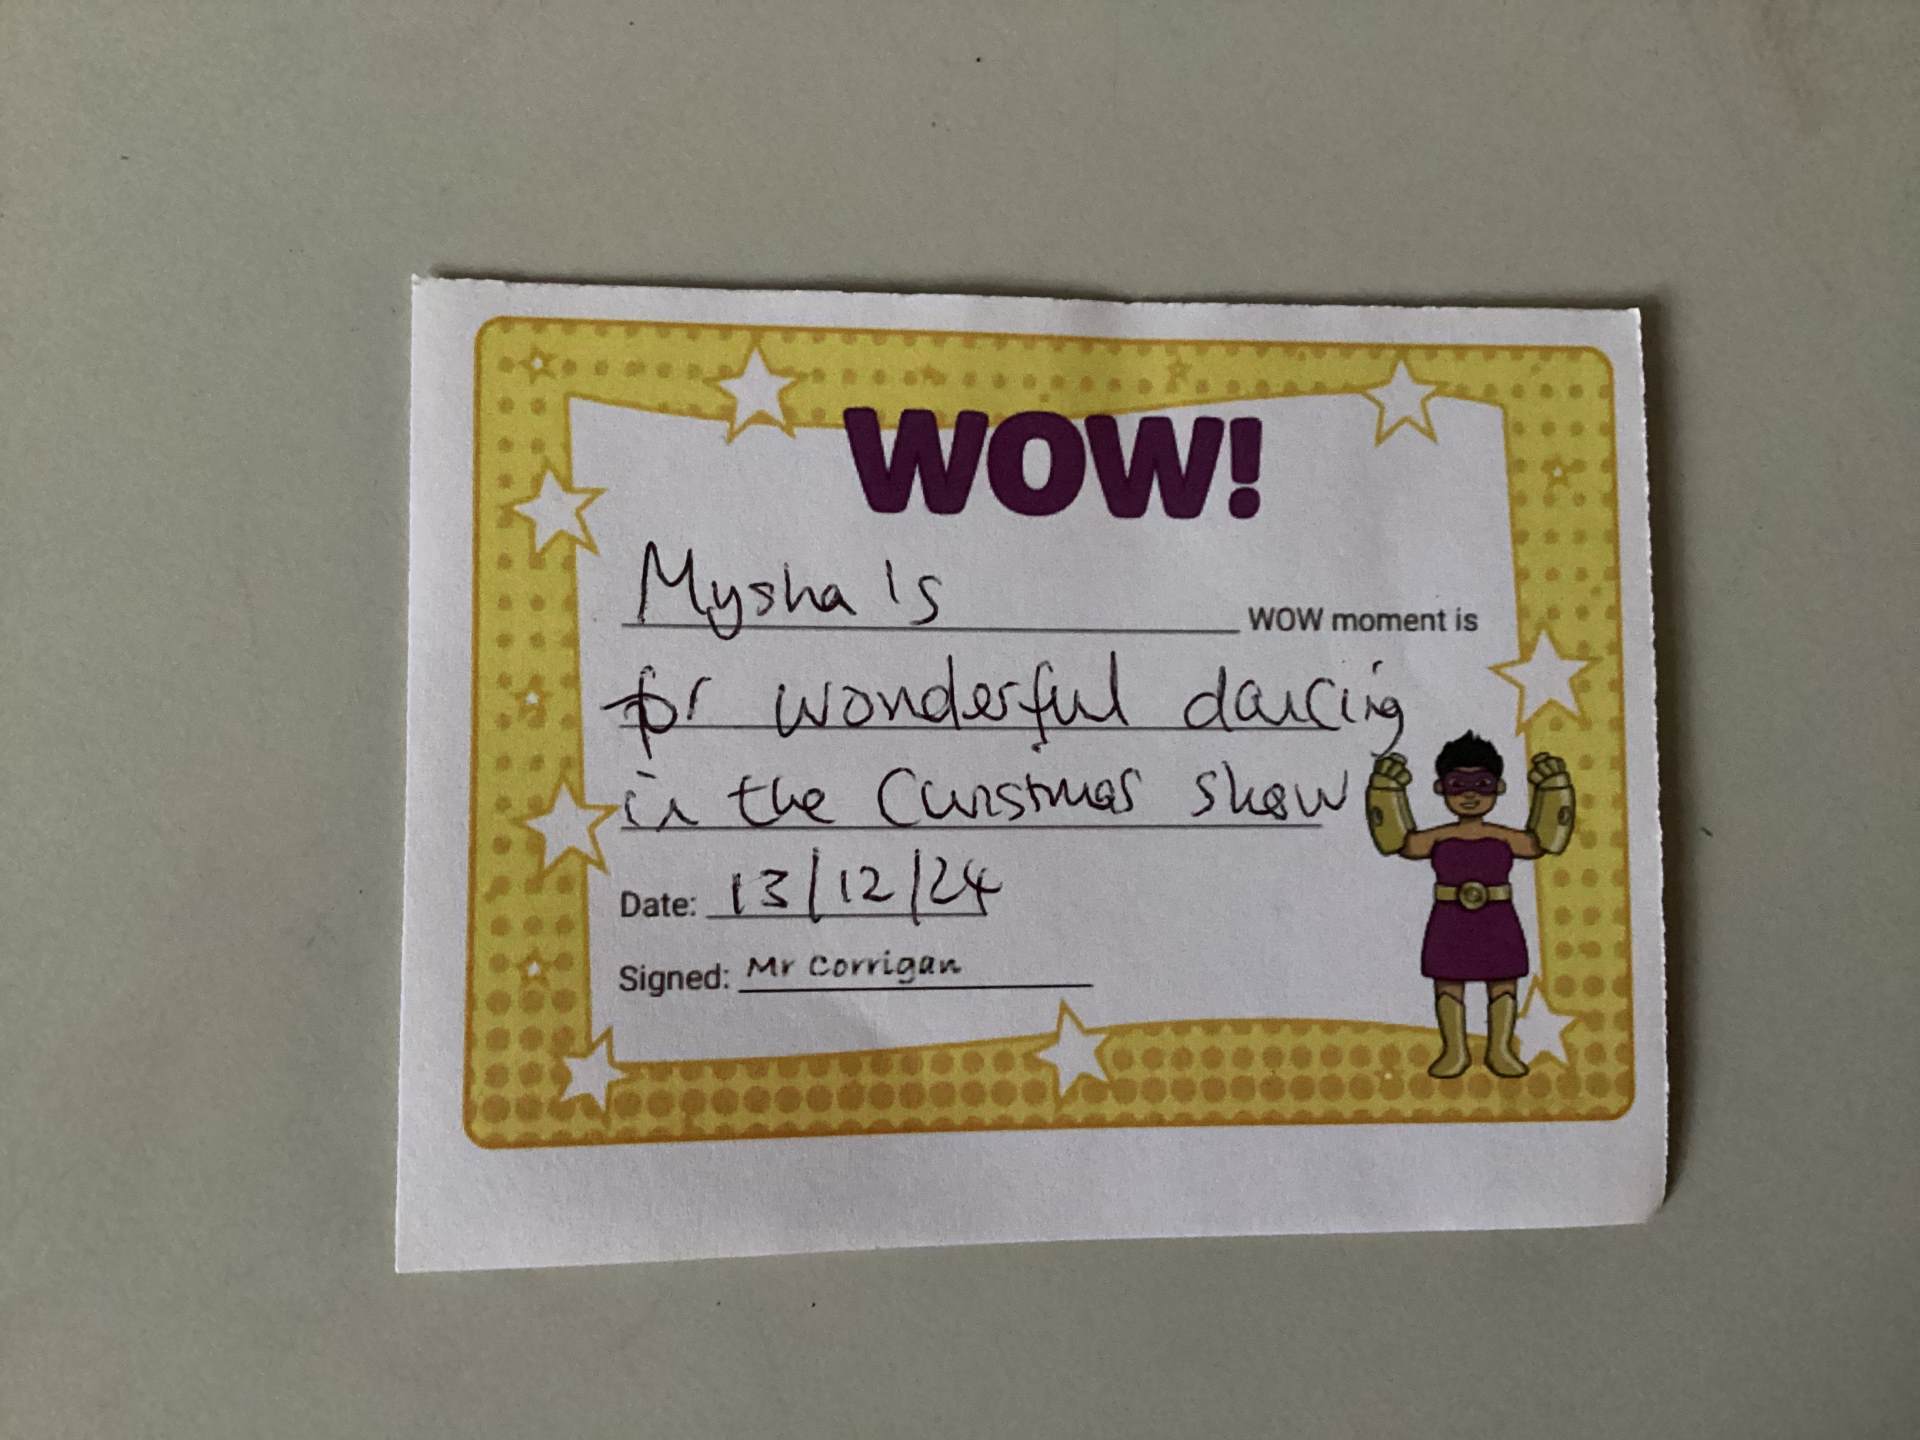 WOW!
Mysha's WOW moment is
for wonderful dancing
in the Christmas show
Date: 13/12/24
Signed: Mr Corrigan